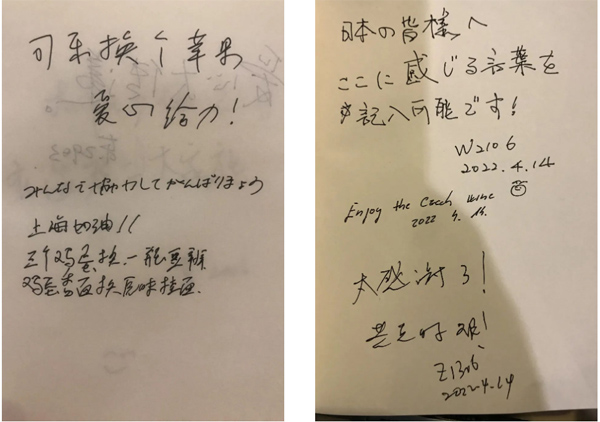 可乐换个苹果
爱心给力!
みんなで協力してがんばりましょう
上海加油!!
三个鸡蛋换一瓶豆瓣
鸡蛋香面换原味挂面.
日本の皆様へ
ここに感じる言葉を
記入可能です!
W2106
2022.4.14
Enjoy the Czech wine
2022 4. 14.
太感谢了!
共克时艰!
Z1306
2022.4.14